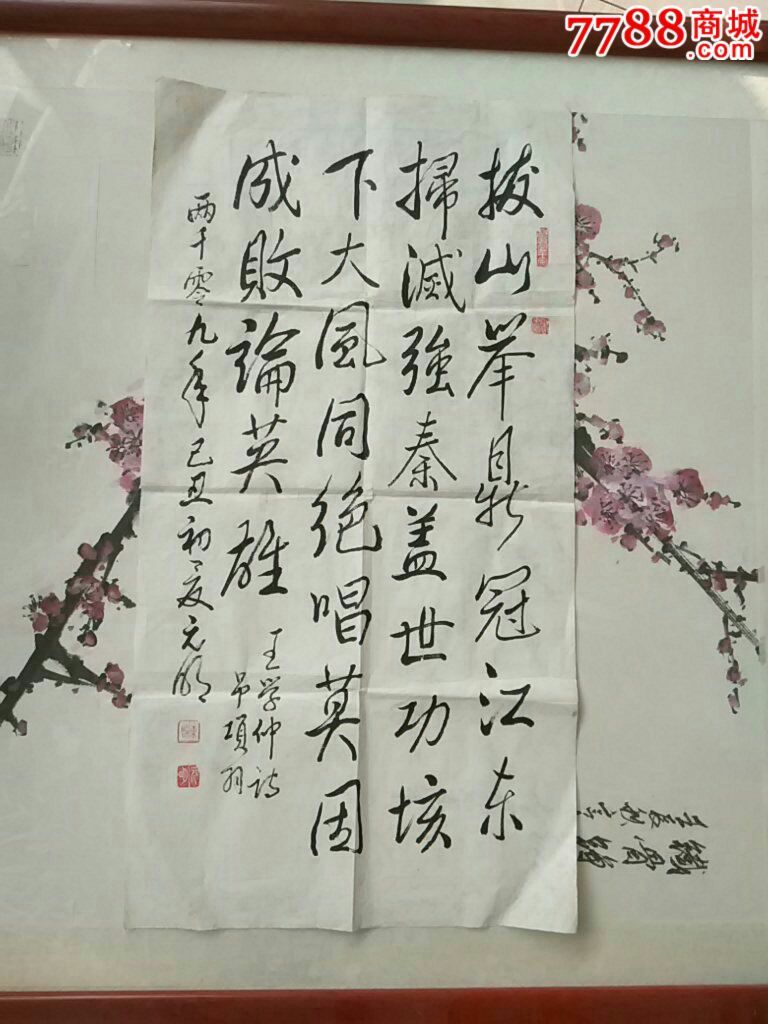 7788商城
.com
拔山举鼎冠江东
掃滅強秦盖世功垓
下大風同絶唱莫因
成敗論英雄
王学仲诗
吊項羽
两千零九年己丑初夏元明